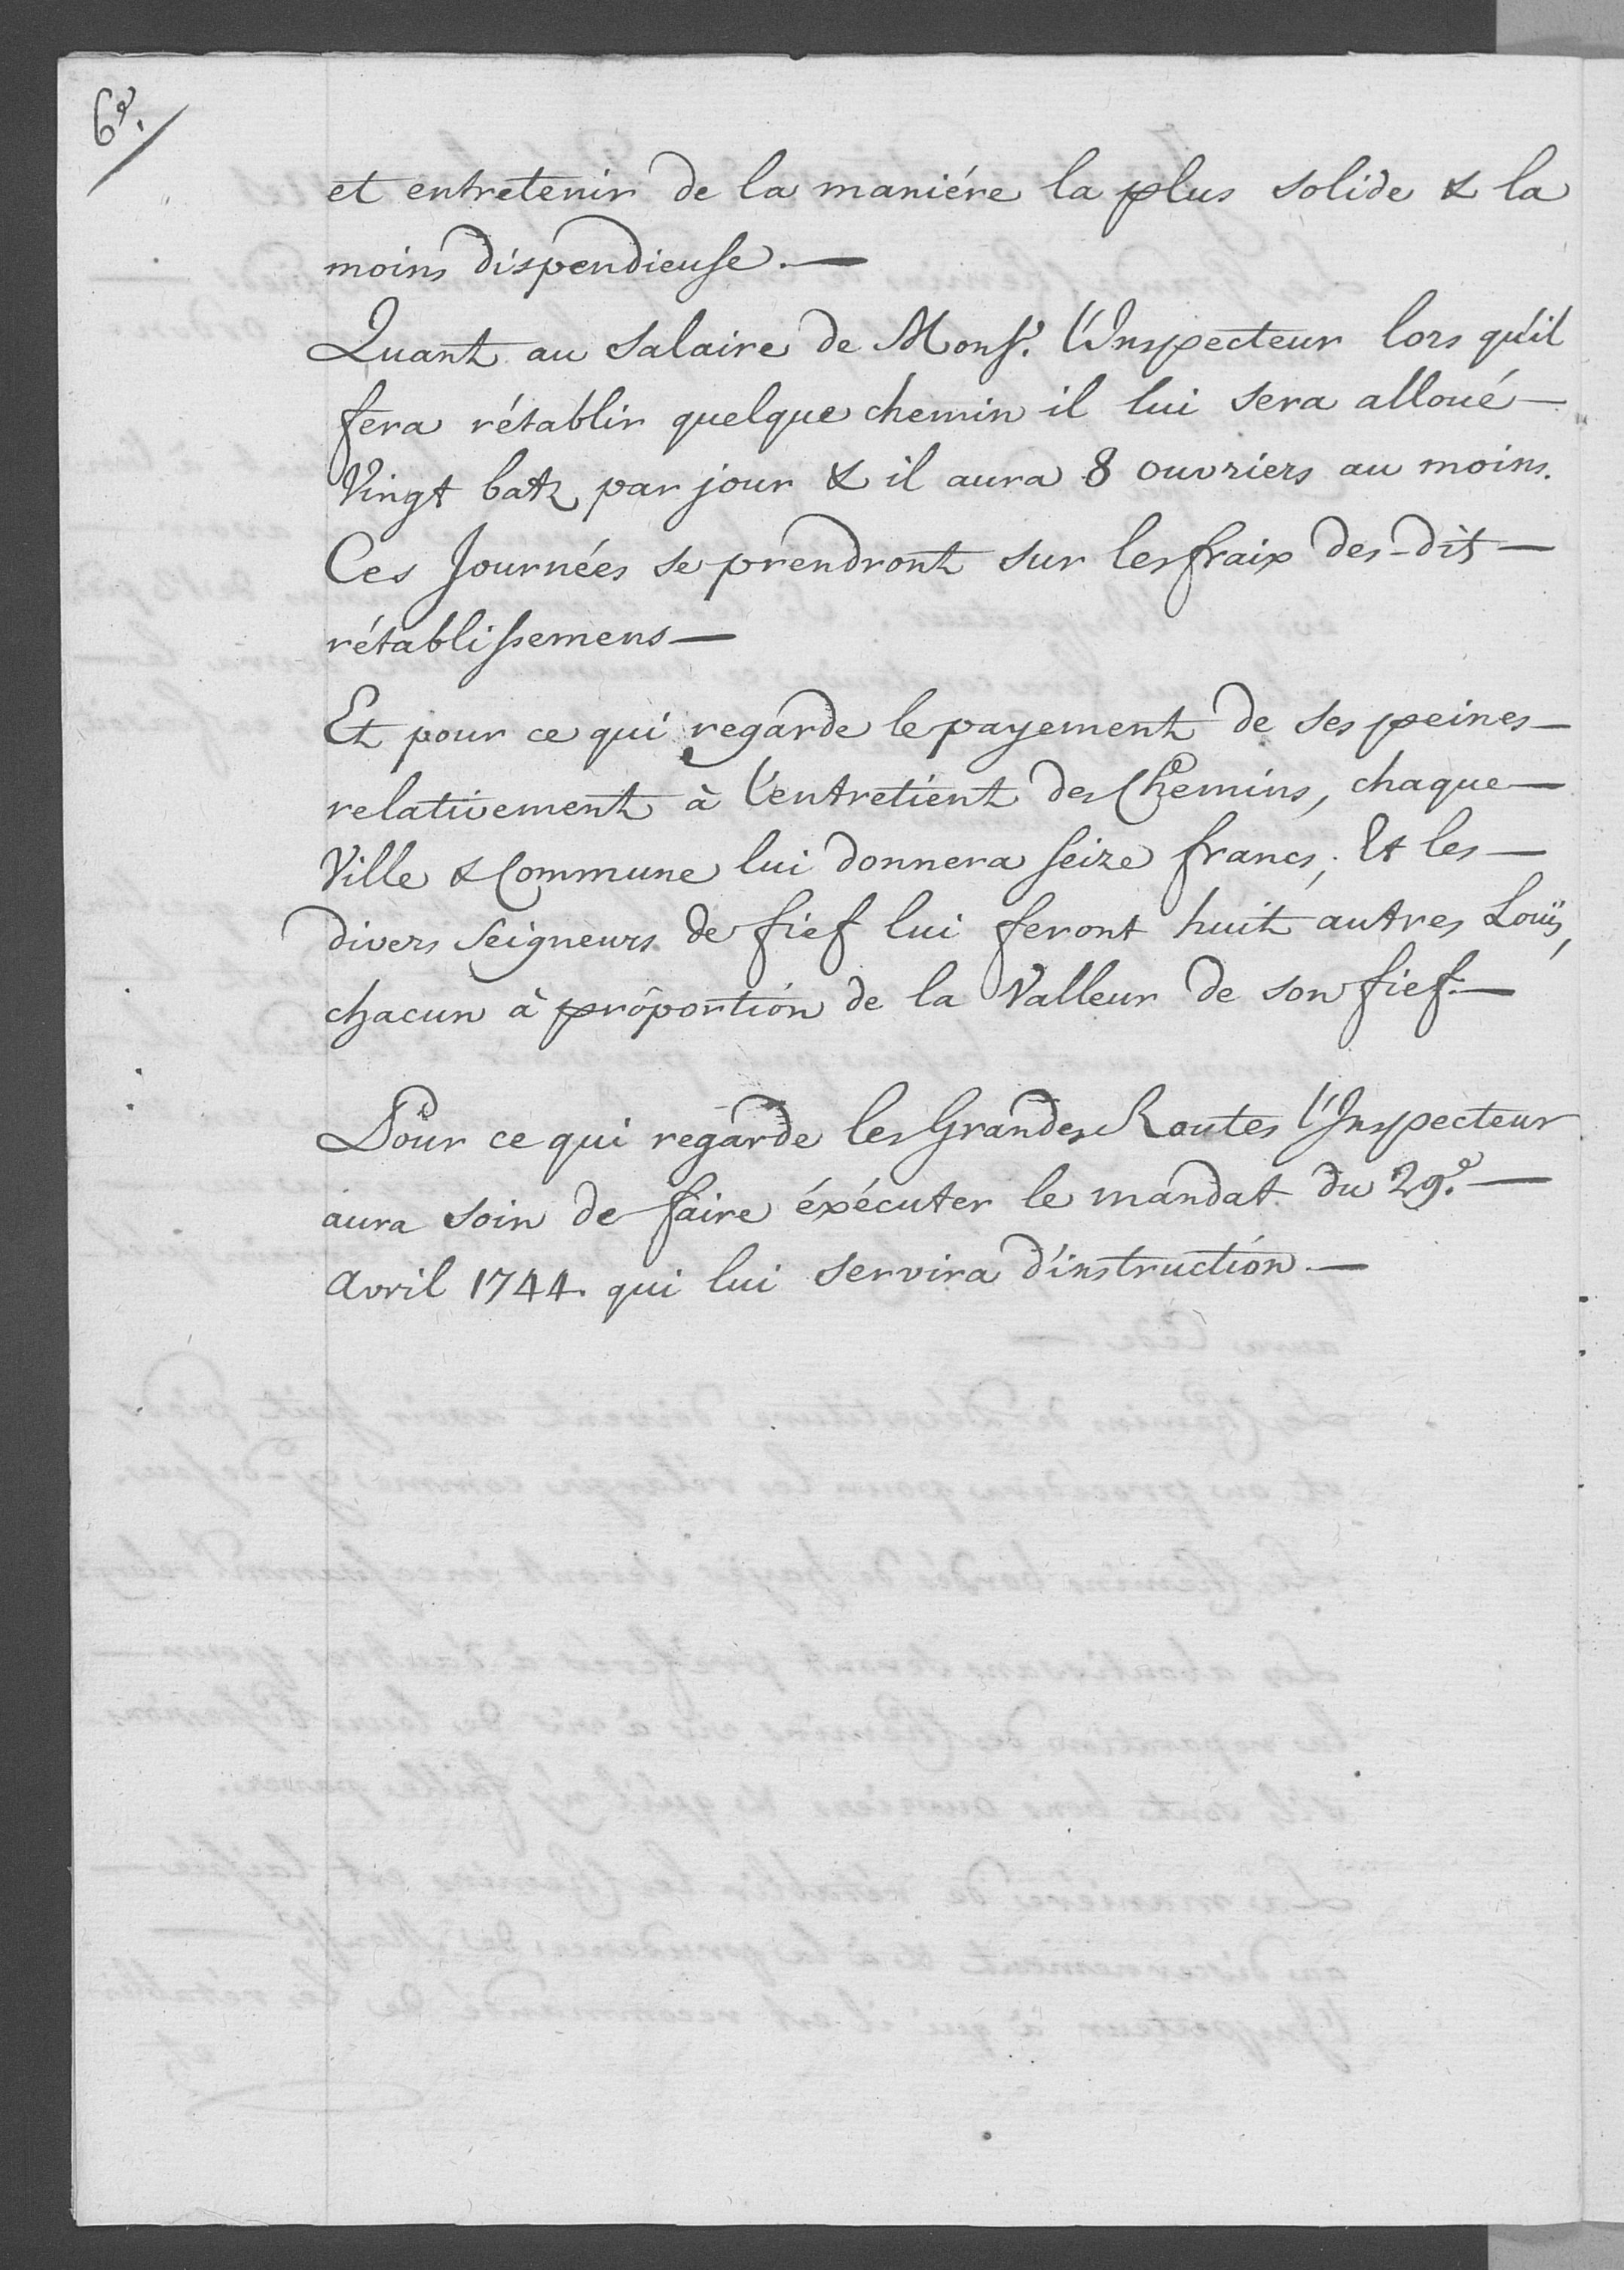 6e.
et entretenir de la maniére la plus solide & la
moins dispendieuse. —
Quant au salaire de Monsr. l'Inspecteur lors qu'il
fera rétablir quelque chemin il lui sera alloué —
Vingt batz par jour & il aura 8 ouvriers au moins.
Ces Journées se prendront sur les fraix des-dits —
rétablissemens —
Et pour ce qui regarde le payement de ses peines —
relativement à l'entretient des Chemins, chaque —
Ville & Commune lui donnera seize francs; Et les —
divers seigneurs de fief lui feront huit autres Louïs,
chacun à proportión de la Valleur de son fief. —
Pour ce qui regarde les Grandes Routes l'Inspecteur
aura soin de faire éxécuter le mandat du 29e. —
avril 1744. qui lui servira d'instructión. —